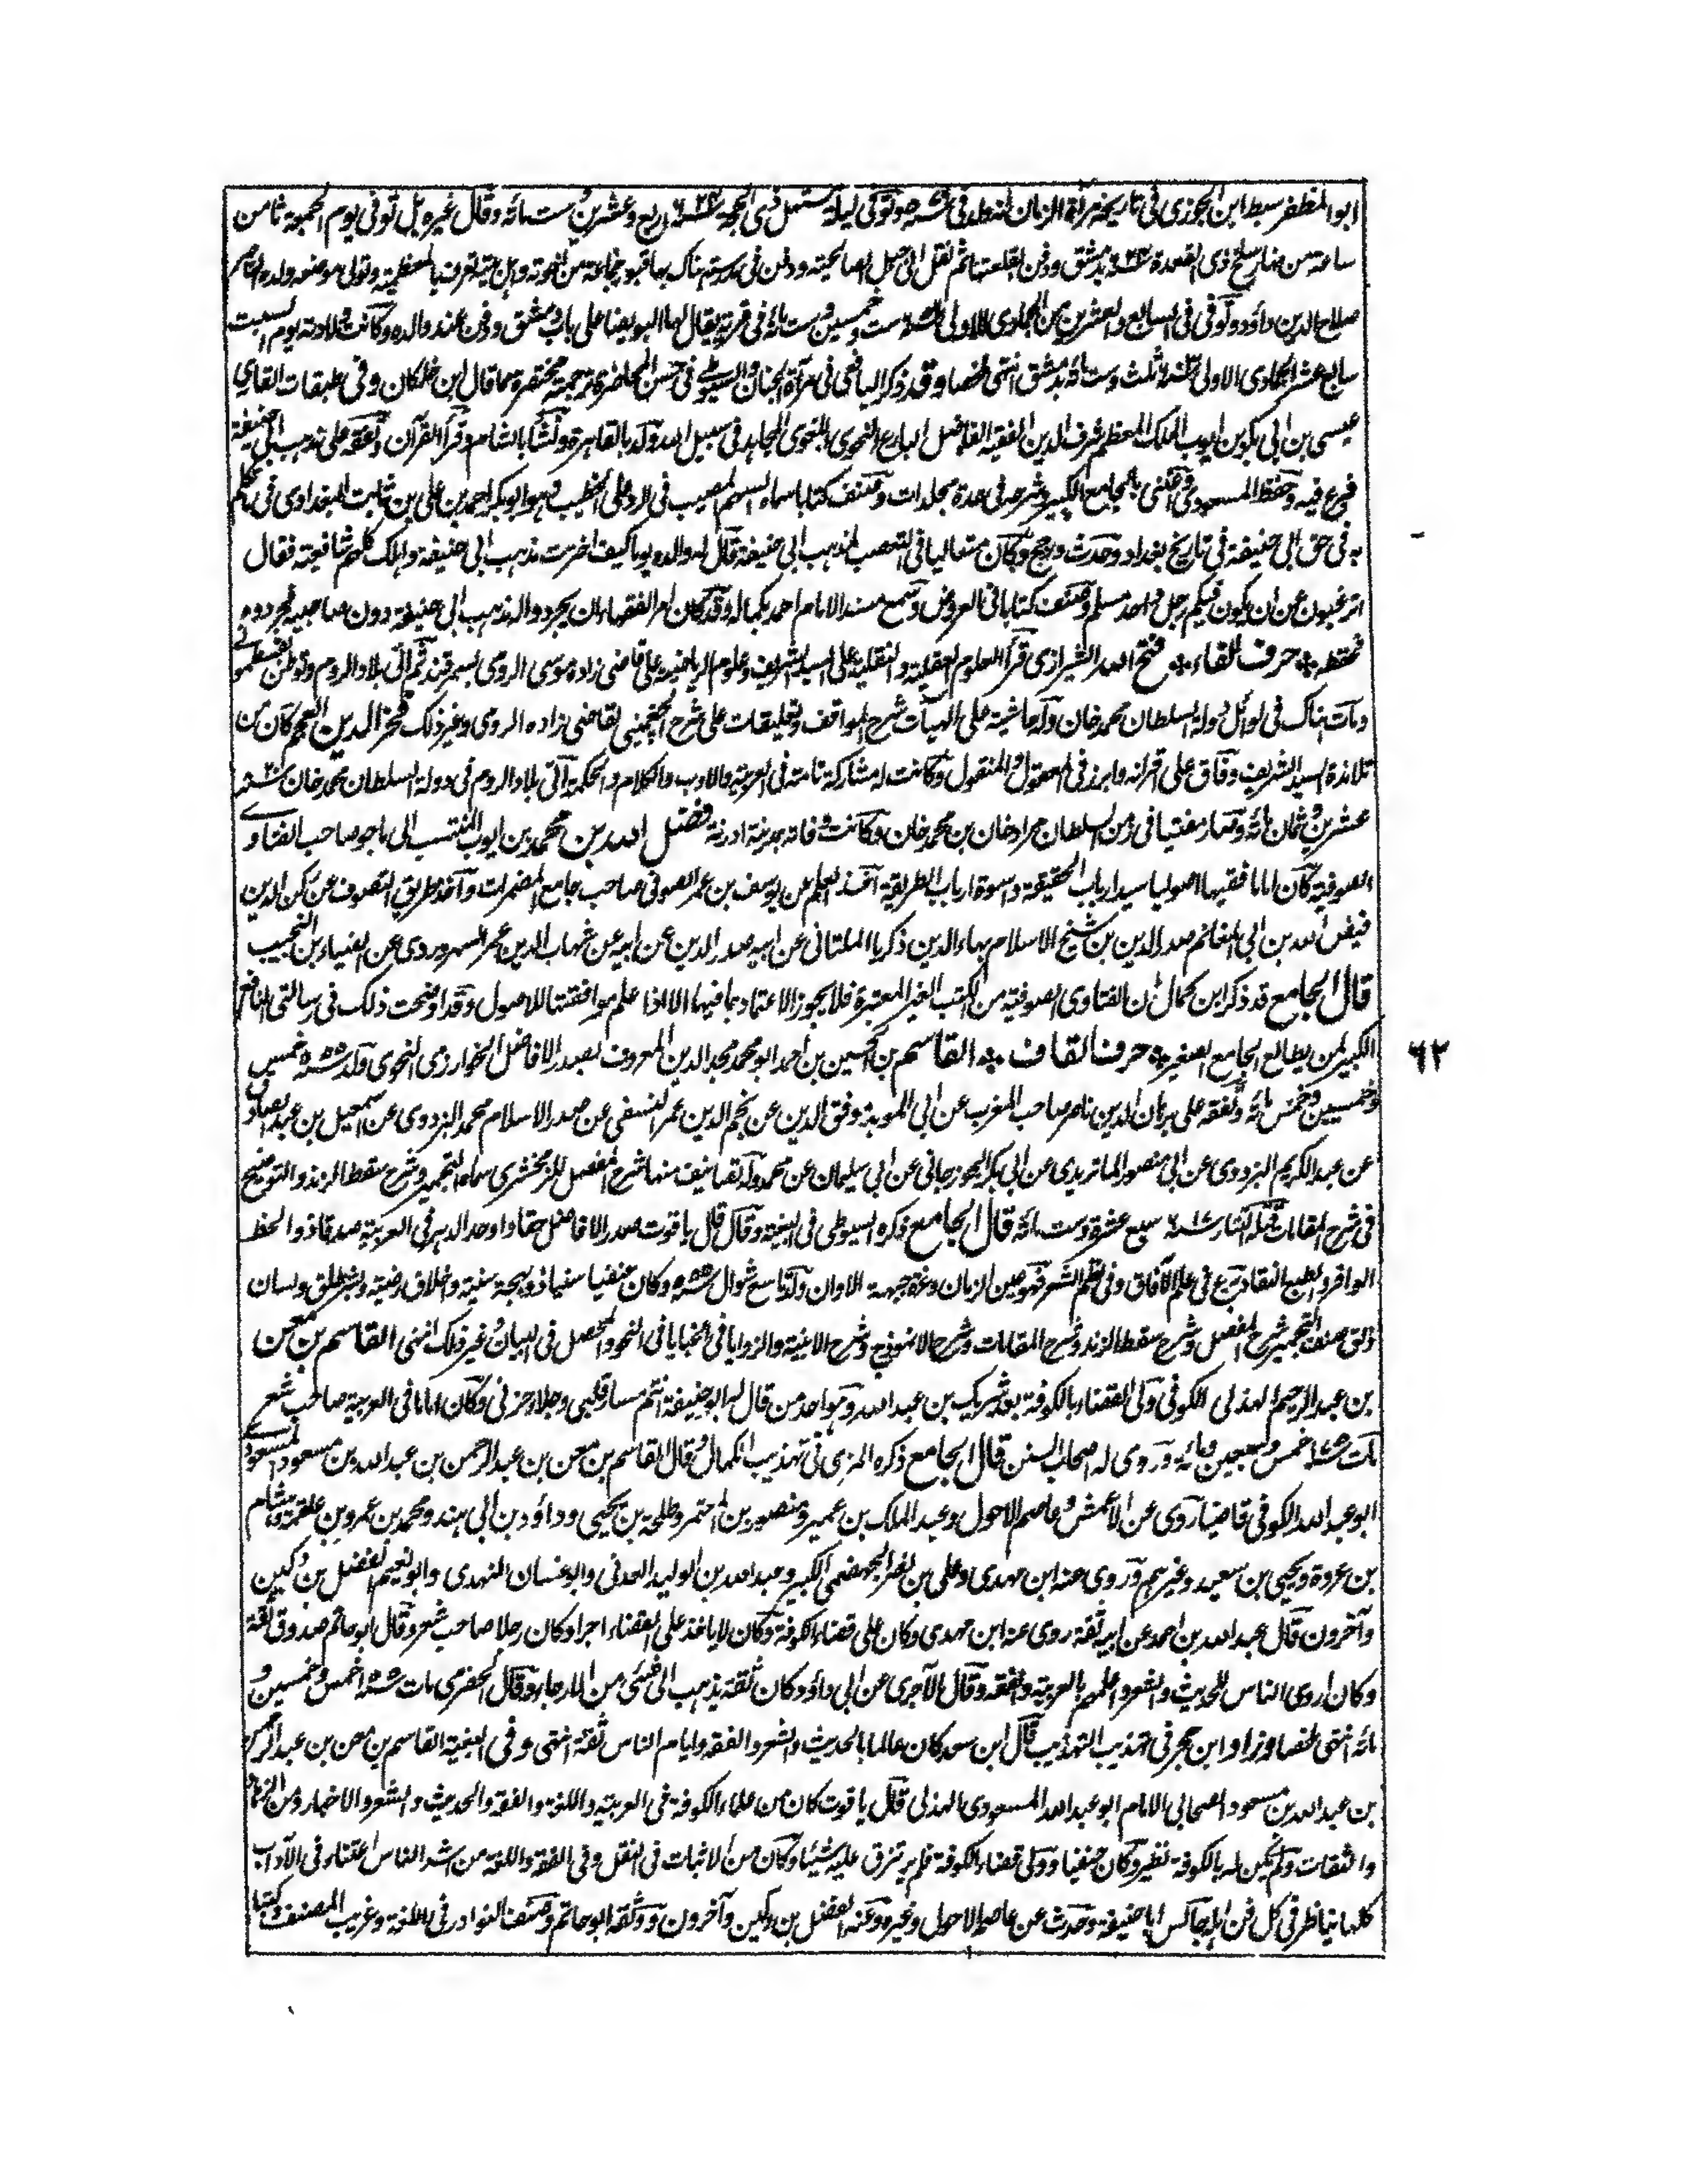 ابو المظفر سبط ابن الجوزي في تاريخه مرآة الزمان انه ولد في سنة وتوفي ليلة مستهل ذي الحجة سنة ٦٢٤ اربع وعشرين وست مائة وقال غيره بل توفي يوم الجمعة ثامن
ساعة من نهار سلخ ذي القعدة سنة بدمشق ودفن بقلعتها ثم نقل الى جبل الصالحية ودفن في مدرسة هناك بها قبور جماعة من اخوته واهل بيته تعرف بالمعظمية وتولى موضعه ولده الناصر
صلاح الدين داؤد وتوفي في السابع والعشرين من الجمادى الاولى سنة ٦٥٦ ست وخمسين وست مائة في قرية يقال لها البويضا على باب دمشق ودفن عند والده وكانت ولادته يوم السبت
سابع عشر الجمادى الاولى سنة ٦٠٣ ثلث وست مائة بدمشق انتهى ملخصا وقد ذكر اليافعي في مرآة الجنان والسيوطي في حسن المحاضرة ترجمة مختصرة مما قال ابن خلكان وفي طبقات القاري
عيسى بن ابي بكر بن ايوب الملك المعظم شرف الدين الفقيه الفاضل البارع النحوي اللغوي المجاهد في سبيل الله ولد بالقاهرة ونشأ بالشام وقرأ القرآن وتفقه على مذهب ابي حنيفة
فبرع فيه وحفظ المسعودي واعتنى بالجامع الكبير وشرحه في عدة مجلدات وصنف كتابا سماه السهم المصيب في الرد على الخطيب وهو ابو بكر احمد بن علي بن ثابت البغدادي في ما تكلم
به في حق ابي حنيفة في تاريخ بغداد وحدث وحج وكان متغاليا في التعصب لمذهب ابي حنيفة قال له والده يوما كيف اخترت مذهب ابي حنيفة واهلك كلهم شافعية فقال
اترغبون عن ان يكون فيكم رجل واحد مسلم وصنف كتابا في العروض وسمع مسند الامام احمد بكماله وقد كان امر الفقهاء ان يجردوا له مذهب ابي حنيفة دون صاحبيه فجردوه
فحفظه * حرف الفاء * فتح الله الشيرازي قرأ العلوم العقلية والنقلية على السيد الشريف وعلوم الرياضية على قاضي زاده موسى الرومي بسمرقند ثم اتى بلاد الروم وتوطن بقسطموني
ومات هناك في اوائل دولة السلطان محمد خان وله حاشية على الهيات شرح المواقف وتعليقات على شرح الچغميني لقاضي زاده الرومي وغير ذلك فخر الدين العجم كان من
تلامذة السيد الشريف وفاق على اقرانه وابرز في المعقول والمنقول وكانت له مشاركة تامة في العربية والادب والكلام والحكمة اتى بلاد الروم في دولة السلطان محمد خان سنة
عشرين وثمان مائة وصار مفتيا في زمن السلطان مراد خان بن محمد خان وكانت وفاته بمدينة ادرنة فضل الله بن محمد بن ايوب المنتسب الى ماجو صاحب الفتاوى
الصوفية كان اماما فقيها اصوليا سيد ارباب الحقيقة واسوة ارباب الطريقة اخذ العلم عن يوسف بن عمر الصوفي صاحب جامع المضمرات وآخذ طريق التصوف عن ركن الدين
فيض الله بن ابي المغانم صدر الدين بن شيخ الاسلام بهاء الدين ذكريا الملتاني عن ابيه صدر الدين عن ابيه عن شهاب الدين عمر السهروردي عن الضياء بن النجيب
قال الجامع قد ذكر ابن كمال ان الفتاوى الصوفية من الكتب الغير المعتبرة فلا يجوز الاعتماد بما فيها الا اذا علم موافقتها للاصول وقد اوضحت ذلك في رسالتي النافع
الكبير لمن يطالع الجامع الصغير * حرف القاف * القاسم بن الحسين بن احمد ابو محمد مجد الدين المعروف بصدر الافاضل الخوارزمي النحوي ولد سنة ٥٥٥ خمس
٦٢
وخمسين وخمس مائة وتفقه على برهان الدين ناصر صاحب المغرب عن ابي المويد موفق الدين عن نجم الدين عمر النسفي عن صدر الاسلام محمد البزدوي عن اسمعيل بن عبد الصادق
عن عبد الكريم البزدوي عن ابي منصور الماتريدي عن ابي بكر الجوزجاني عن ابي سليمان عن محمد وله تصانيف منها شرح المفصل للزمخشري سماه التجمير وشرح سقط الزند والتوضيح
في شرح المقامات قتله التتار سنة ٦١٧ سبع عشرة وست مائة قال الجامع ذكره السيوطي في البغية وقال قال ياقوت صدر الافاضل حقا واوحد الدهر في العربية صدقا ذو الحظ
الوافر والطبع النقاد برع في علم الآفاق وفي نظم الشعر فهو عين الزمان وغرة جبهة الاوان ولد تاسع شوال سنة ٥٥٥ وكان حنفيا سنيا ذو بهجة سنية واخلاق رضية وبشر طلق ولسان
ذلق صنف التجمير شرح المفصل وشرح سقط الزند وشرح المقامات وشرح الانموذج وشرح الابنية والزوايا في الخبايا في النحو والمحصل في البيان وغير ذلك انتهى القاسم بن معن
بن عبد الرحيم الهذلي الكوفي ولي القضاء بالكوفة بعد شريك بن عبد الله وهو احد من قال لهم ابو حنيفة انتم مسار قلبي وجلاء حزني وكان اماما في العربية صاحب شعر
مات سنة ١٧٥ خمس وسبعين ومائة وروى له اصحاب السنن قال الجامع ذكره المزي في تهذيب الكمال وقال القاسم بن معن بن عبد الرحمن بن عبد الله بن مسعود المسعودي
ابو عبد الله الكوفي قاضيها روى عن الاعمش وعاصم الاحول وعبد الملك بن عمير ومنصور بن المعتمر وطلحة بن يحيى وداؤد بن ابي هند ومحمد بن عمرو بن علقمة وهشام
بن عروة ويحيى بن سعيد وغيرهم وروى عنه ابن مهدي وعلي بن نصر الجهضمي الكبير وعبد الله بن الوليد العدني وابو غسان النهدي وابو نعيم الفضل بن دكين
وآخرون قال عبد الله بن احمد عن ابيه ثقة روى عنه ابن مهدي وكان على قضاء الكوفة وكان لا ياخذ على القضاء اجرا وكان رجلا صاحب شعر وقال ابو حاتم صدوق ثقة
وكان اروى الناس للحديث والشعر واعلمهم بالعربية والفقه وقال الآجري عن ابي داؤد كان ثقة يذهب الى شئ من الارجاء وقال الحضرمي مات سنة خمس وخمسين و
مائة انتهى ملخصا وزاد ابن حجر في تهذيب التهذيب قال ابن سعد كان عالما بالحديث والشعر والفقه وايام الناس ثقة انتهى وفي البغية القاسم بن معن بن عبد الرحمن
بن عبد الله بن مسعود الصحابي الامام ابو عبد الله المسعودي الهذلي قال ياقوت كان من علماء الكوفة في العربية واللغة والفقه والحديث والشعر والاخبار ومن الزهاد
والثقات ولم يكن له بالكوفة نظير وكان حنفيا وولي قضاء الكوفة فلم يرتزق عليه شيئا وكان من الاثبات في النقل وفي الفقه واللغة من اشد الناس اعتناء في الآداب
كلها يناظر في كل فن اهله جالس ابا حنيفة وحدث عن عاصم الاحول وغيره وعنه الفضل بن دكين وآخرون ووثقه ابو حاتم وصنف النوادر في اللغة وغريب المصنف وكتبا